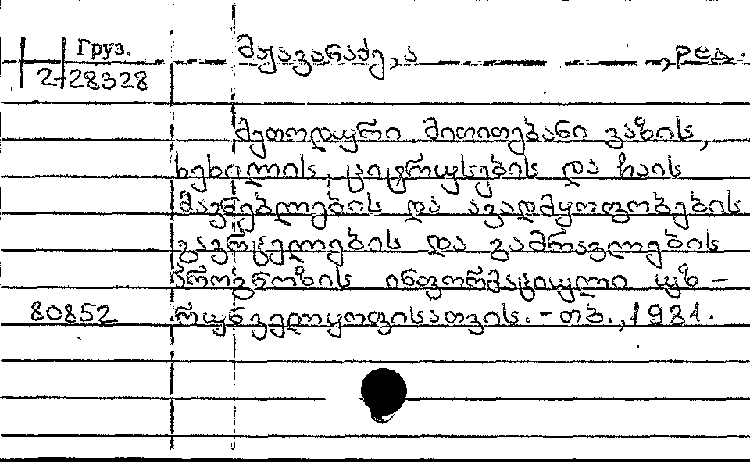 Груз.
მჟავანაძე, ა , ред.
2-28328
მეთოდური მითითებანი ვაზის,
ხეხილის, ციტრუსების და ჩაის
მავნებლების და ავადმყოფობების
გავრცელების და გამრავლების
პროგნოზის ინფორმაციული უზ-
80852 რუნველყოფისათვის. - თბ., 1981.